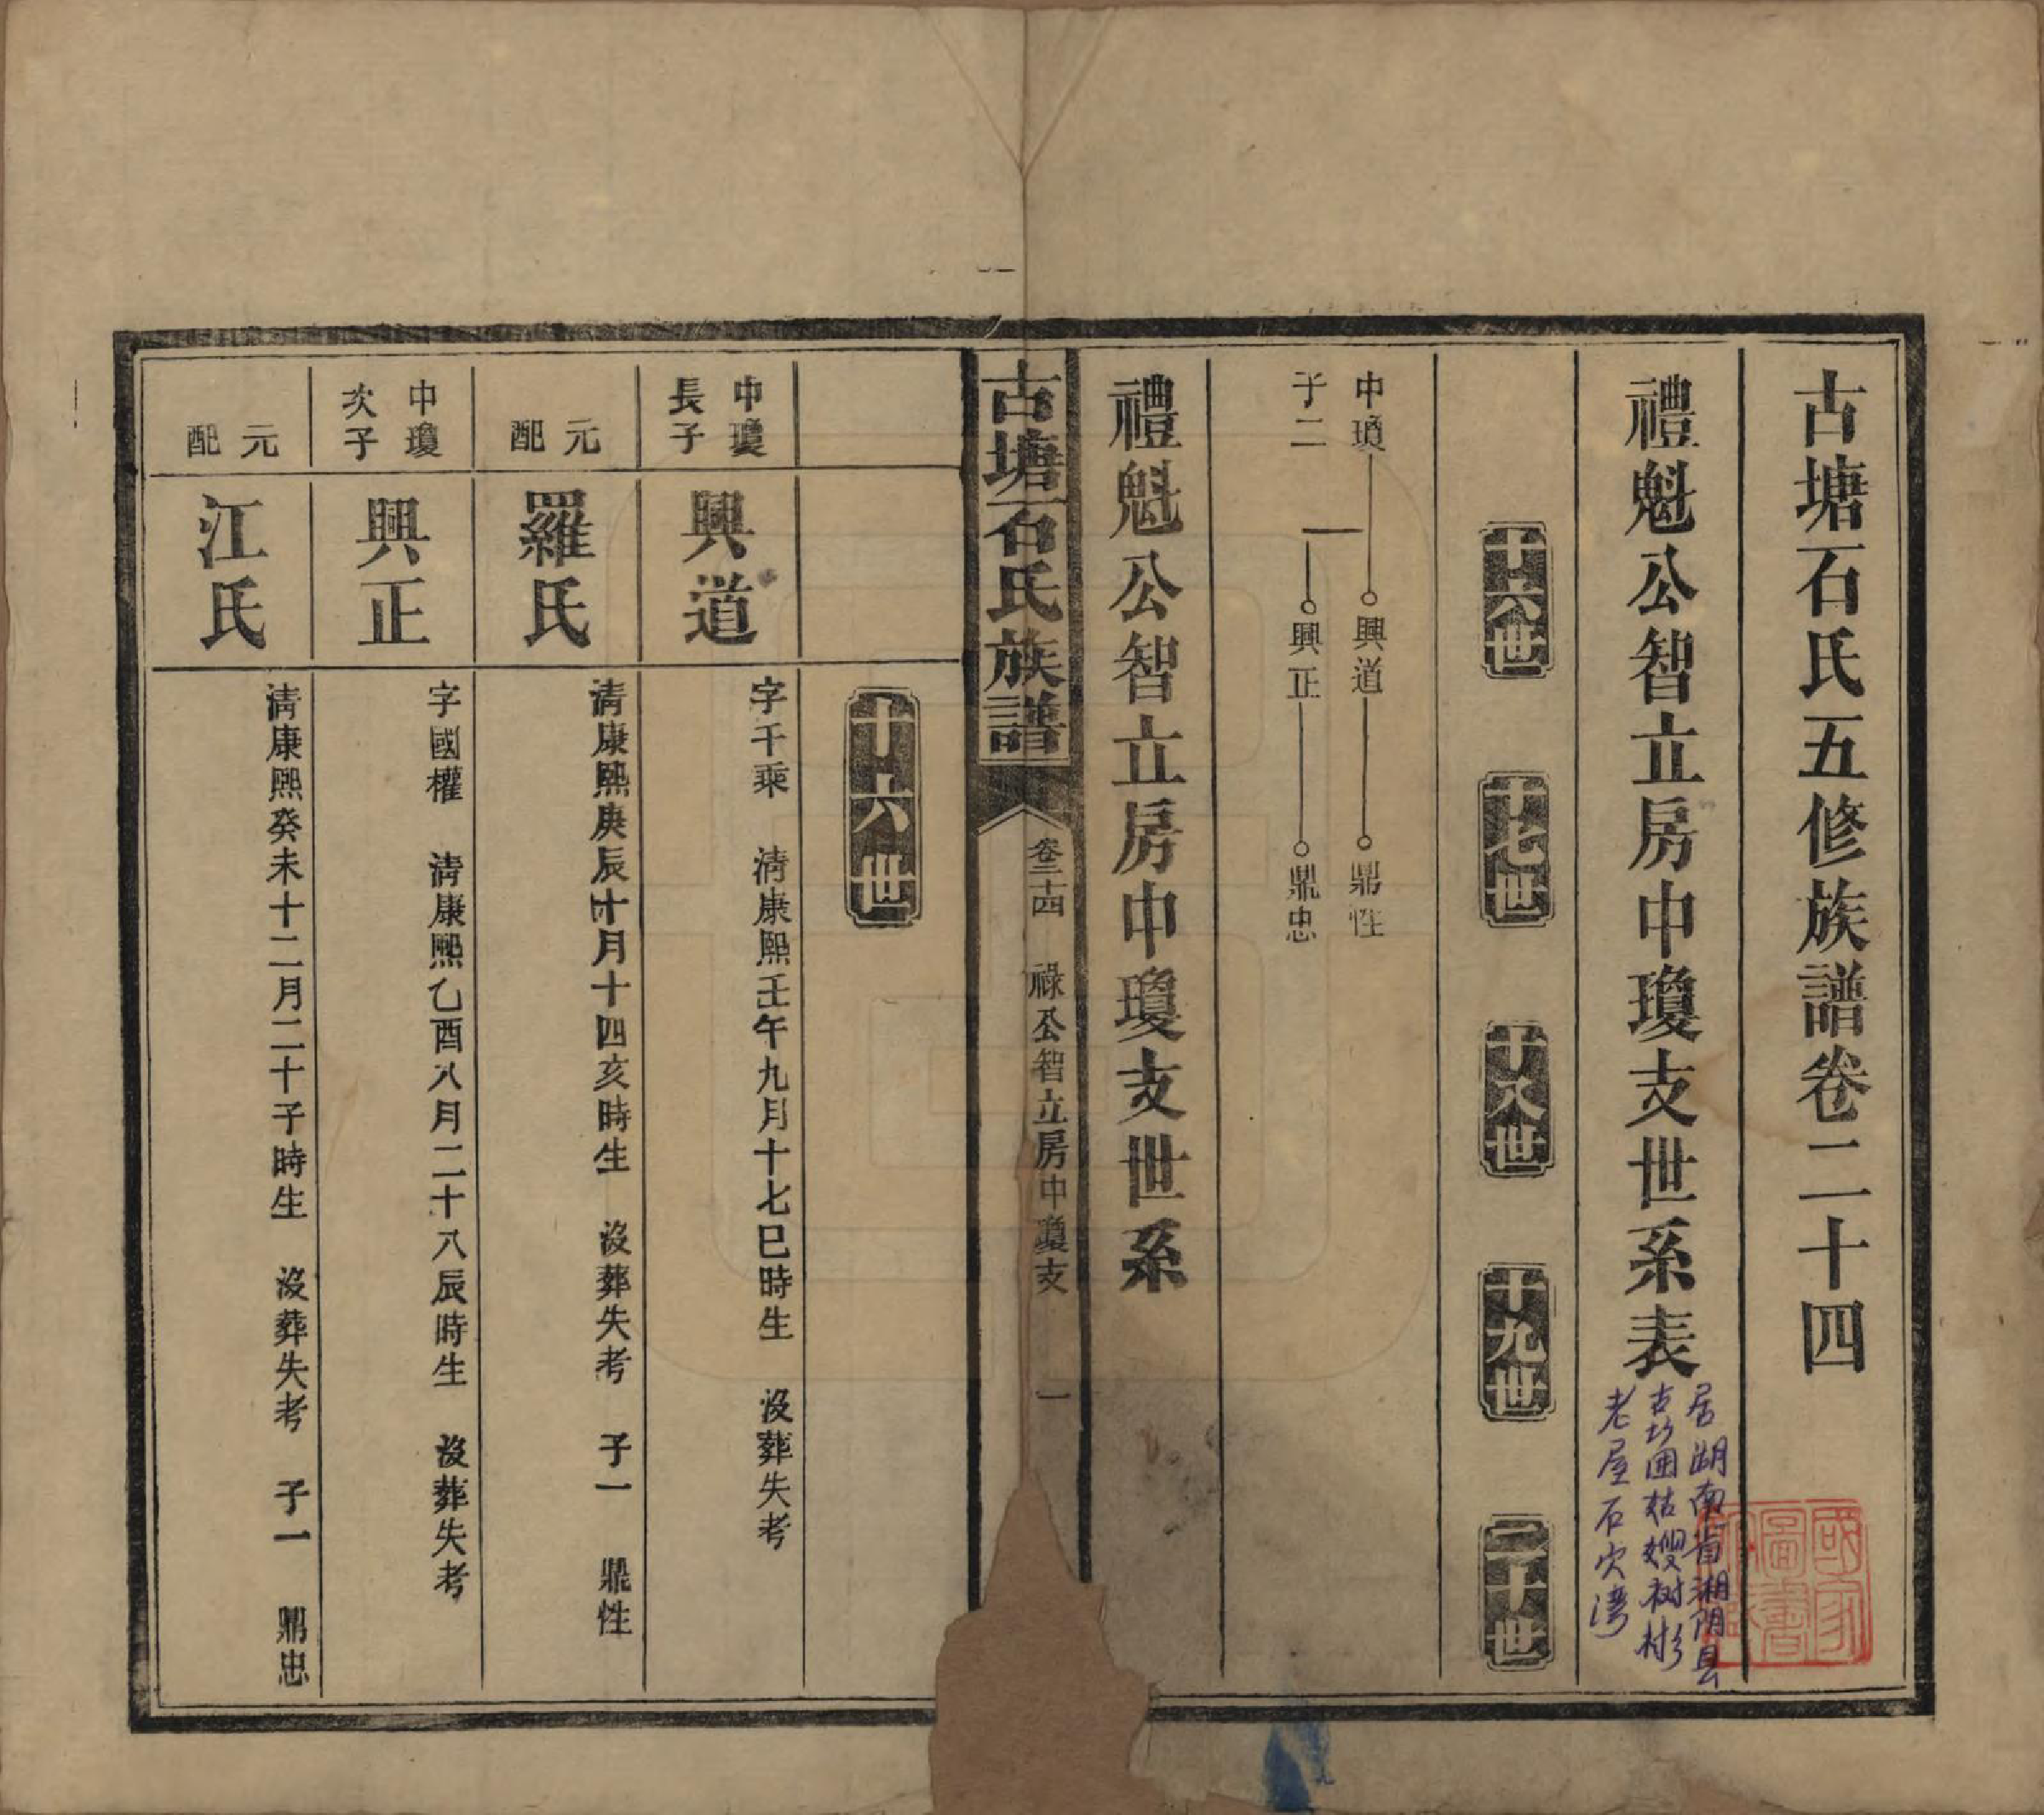 古塘石氏五修族譜卷二十四
禮魁公智立房中瓊支世系表
居湖南省湘阴县
老屋石穴湾
十六世
十七世
十八世
十九世
二十世
中瓊
子二
興道
鼎性
興正
鼎忠
禮魁公智立房中瓊支世系
古塘石氏族譜
卷二十四
祿公智立房中瓊支
一
十六世
中瓊
長子
興道
字千乘 清康熙壬午九月十七巳時生 沒葬失考
元配
羅氏
清康熙庚辰十月十四亥時生 沒葬失考 子一 鼎性
中瓊
次子
興正
字國權 清康熙乙酉八月二十八辰時生 沒葬失考
元配
江氏
清康熙癸未十二月二十子時生 沒葬失考 子一 鼎忠